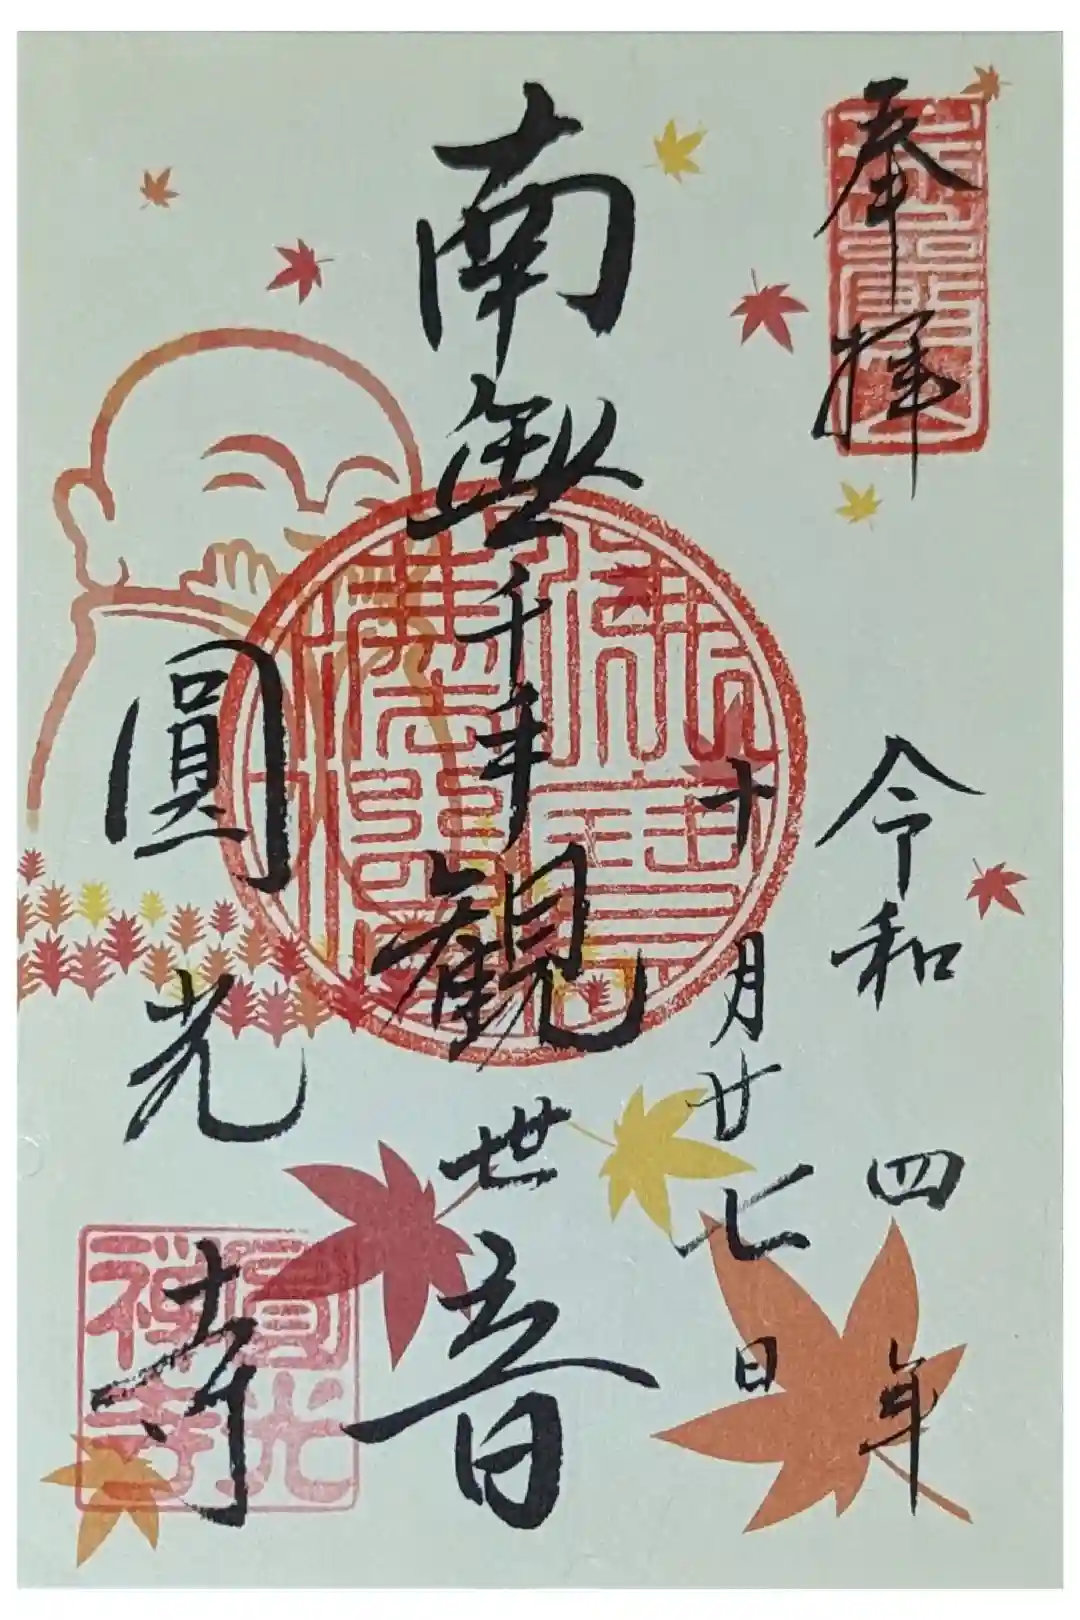 奉拝
令和四年
十月廿七日
南無千手観世音
圓光寺
圓光
禅寺